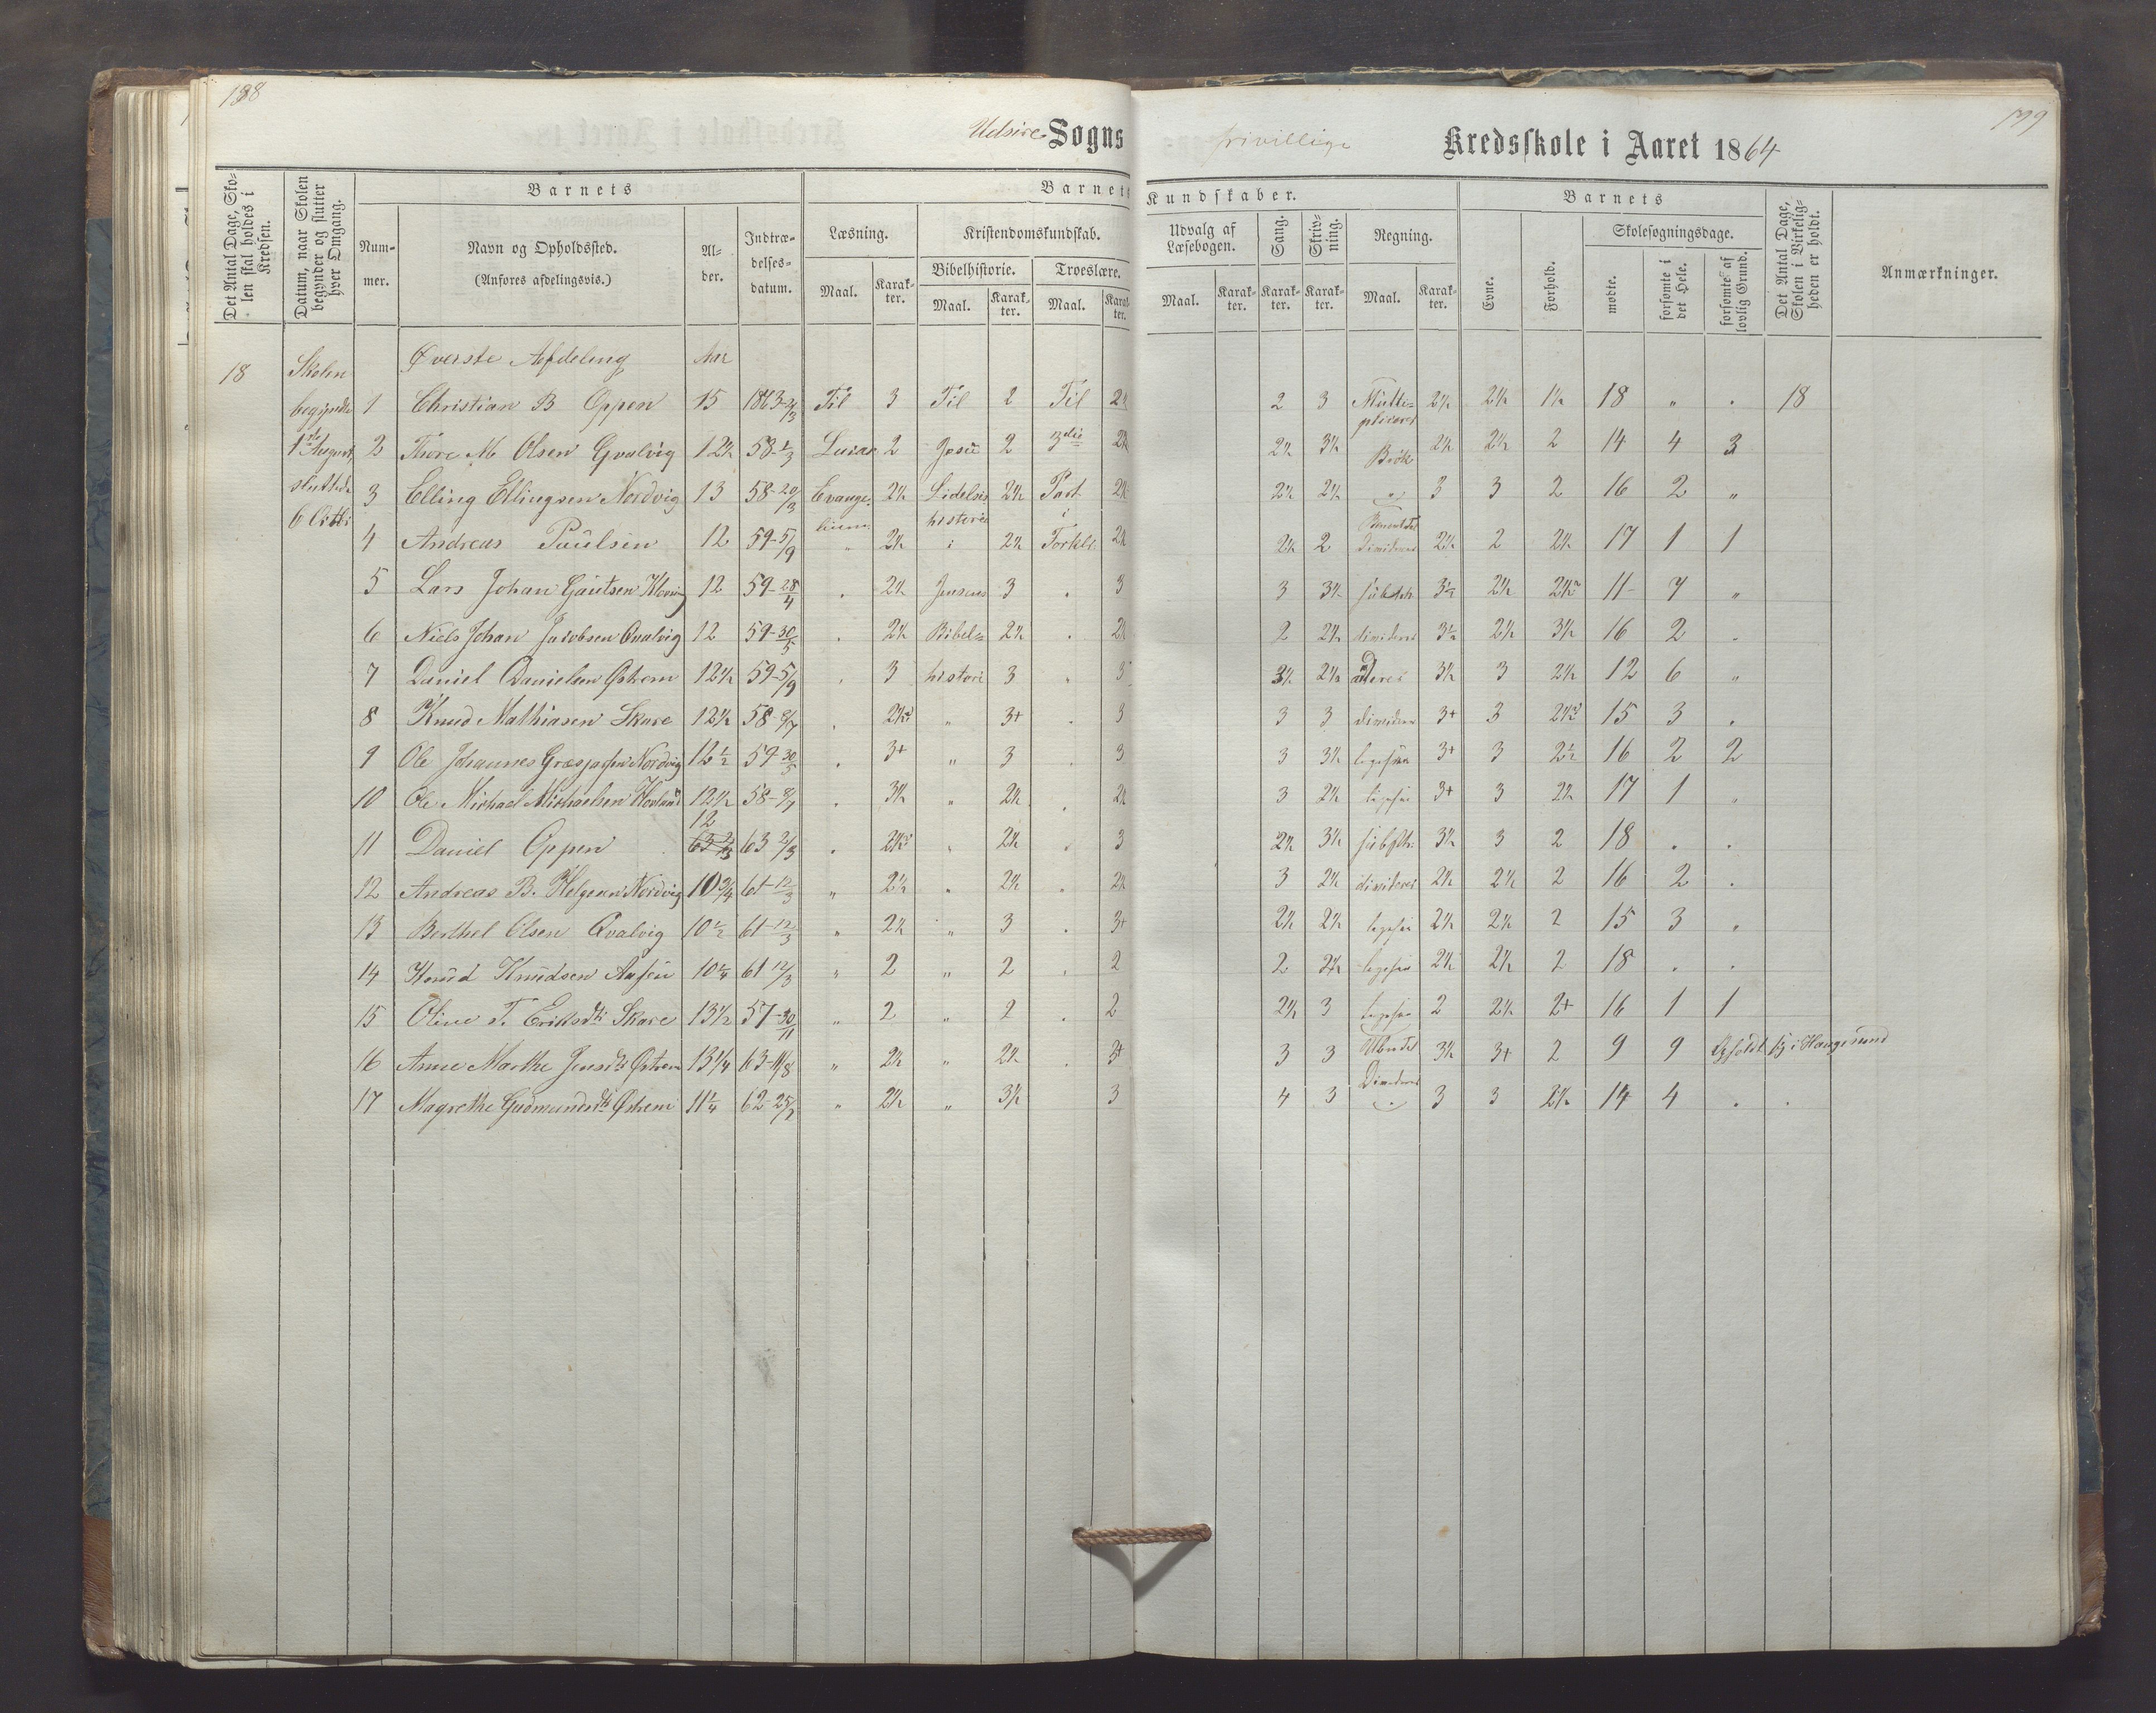 188
139
Udsire Sogns frivillige Kredsskole i Aaret 1864
Det Antal Dage, Skolen skal holdes i Kredsen.
Datum, naar Skolen begynder og slutter hver Omgang.
Barnets
Nummer.
Navn og Opholdssted.
(Anføres afdelingsvis.)
Alder.
Indtrædelsesdatum.
Barnets Kundskaber.
Læsning.
Maal. Karakter.
Kristendomskundskab.
Bibelhistorie. Troeslære.
Maal. Karakter. Maal. Karakter.
Udvalg af Læsebogen.
Maal. Karakter.
Sang. Karakter.
Skrivning. Karakter.
Regning.
Maal. Karakter.
Barnets
Evne. Forhold.
Skolesøgningsdage.
mødte. forsømte i det Hele. forsømte af lovlig Grund.
Det Antal Dage, Skolen i Virkeligheden er holdt.
Anmærkninger.
18 Skolen Øverste Afdeling Aar
begyndte 1 Christian B Oppen 15 1863-2/3 Til 3 Til 2 Til 2½ 2 3 Multipliceret 2½ 2½ 1½ 18 " . 18
1ste August, 2 Thore M Olsen Qvalvig 12½ 58-1/3 Lucas 2 Jesu 2 3die 2½ 2½ 3½ Brøk 2½ 2½ 2 14 4 3
sluttede 3 Elling Ellingsen Nordvig 13 58-20/3 Evange- 2½ Lidelses 2½ Part 2½ 2½ 2½ " 3 3 2 16 2 "
6 Octbr 4 Andreas Paulsen 12 59-5/9 lium " 2½ historie i 2½ i Forkl. 2½ 2½ 2 2½ 2 2½ 17 1 1
5 Lars Johan Gautsen Klovning 12 59-28/4 . 2½ Jensens 3 . 3 3 3½ subtrh 3½ 2½ 2½ 11 7 "
6 Niels Johan Jacobsen Qvalvig 12 59-30/5 . 2½ Bibel= 2½ . 2½ 2 2½ divideres 3½ 2½ 3½ 16 2 .
7 Daniel Danielsen Østrem 12½ 59-5/9 . 3 histori 3 " 3 3½ 2½ aderes 3½ 3 2½ 12 6 "
8 Knud Mathiasen Skare 12½ 58-8/7 . 2½ " 3+ . 3 3 3 divideres 3+ 3 2½ 15 3 .
9 Ole Johannes Nordvig 12½ 59-30/5 . 3+ " 3 . 3 3 3½ ligesaa 3+ 3 2½ 16 2 2
10 Ole Michael Michaelsen Hovland 12½ 58-8/7 . 3½ " 2½ . 2½ 3 2½ ligesaa 3+ 3 2½ 17 1 "
11 Daniel Oppen 12 63 2/3 . 2½ " 2½ . 3 2½ 3½ subtr. 3½ 3 2 18 . .
12 Andreas B. Helgesen Nordvig 10¾ 61-12/3 " 2½ " 2½ . 2½ 3 2½ divideres 2½ 2½ 2 16 2 .
13 Berthel Olsen Qvalvig 10½ 61-12/3 " 2½ " 3 . 3+ 2½ 2½ ligesaa 2½ 2½ 2 15 3 "
14 Knud Knudsen 10¼ 61 12/3 " 2 " 2 . 2 2 2½ ligesaa 2½ 2½ 2 18 . .
15 Oline T. Eriksdtr Skare 13½ 57-30/11 " 2 " 2 . 2 2½ 3 ligesaa 2 2½ 2+ 16 1 1
16 Anne Marthe Jensdtr Østrem 13¼ 63-11/8 " 2½ " 2½ . 3+ 3 3 3½ 3+ 2 9 9 i Haugesund
17 Magrethe Gudmundsdtr Østrem 11¼ 62-25/2 " 2½ " 3½ 3 4 3 Divideres " 3 3 2½ 14 4 . .